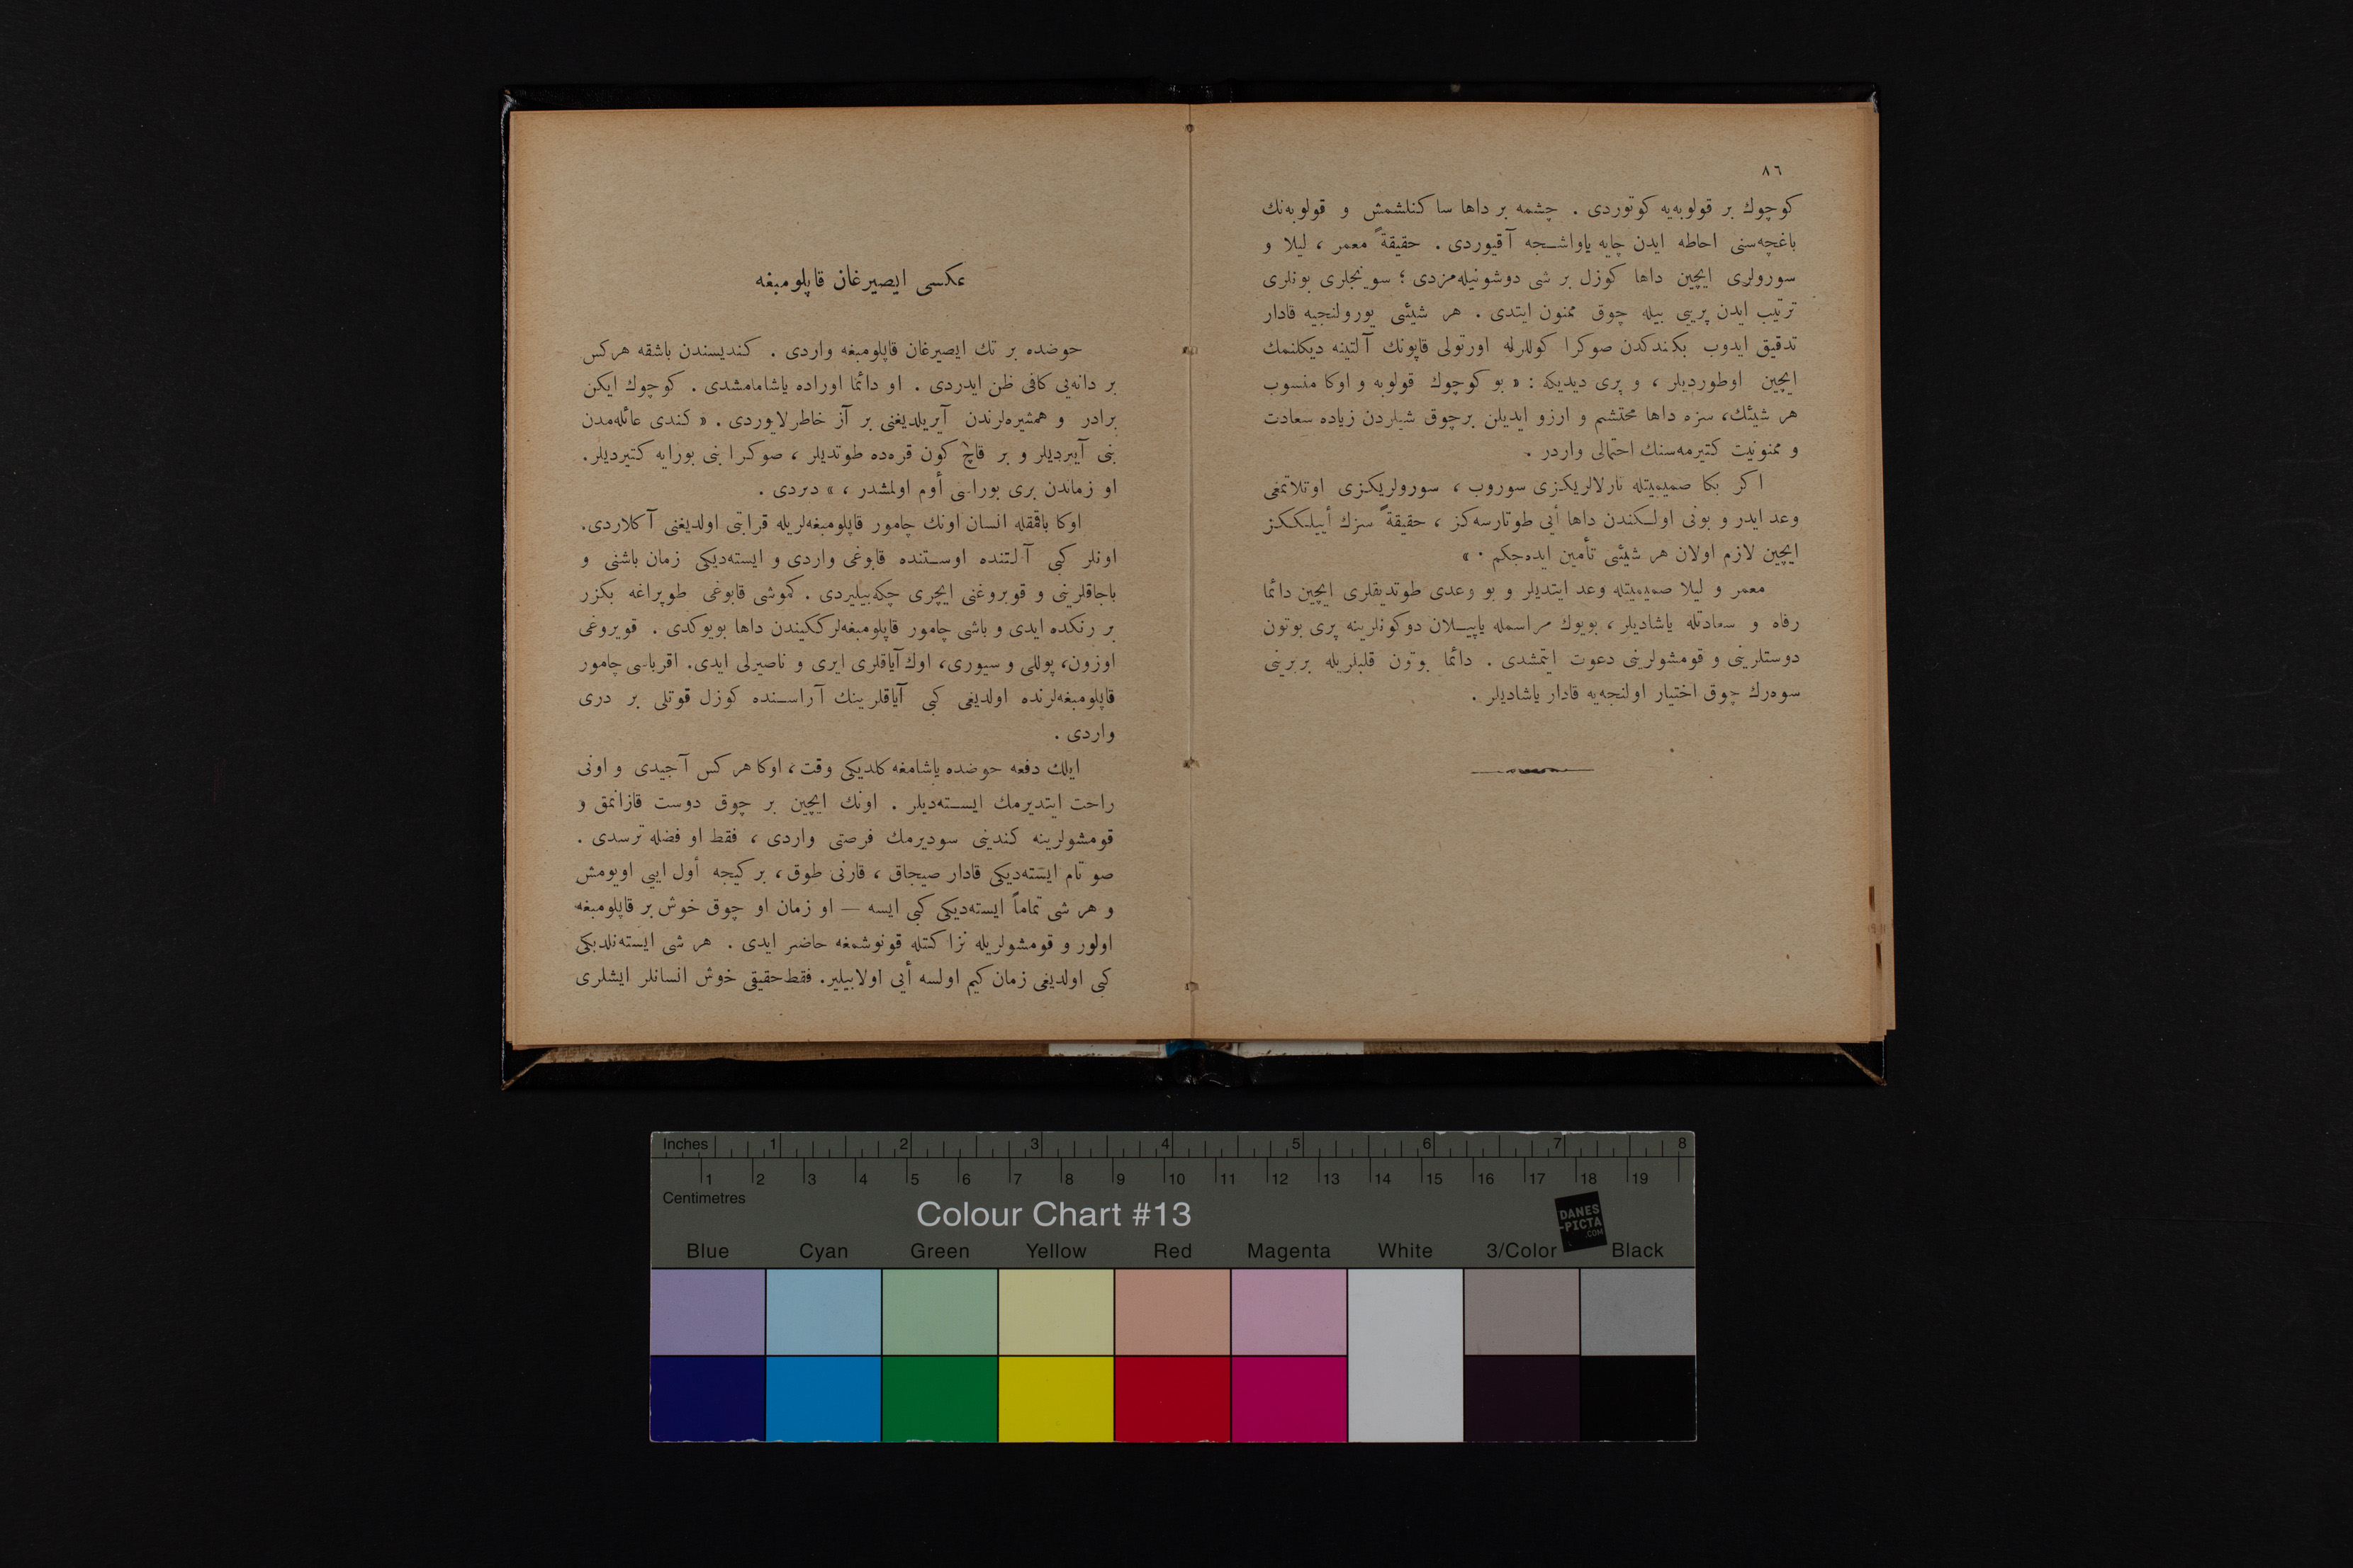 ٨٦
كوچوك بر قولوبه‌يه كوتوردى . چشمه بر داها سا كنلشمش و قولوبه‌نك
باغچه‌سنى احاطه ايدن چايه ياواشجه آقيوردى . حقيقةً معمر ، ليلا و
سورولرى ايچين داها كوزل بر شى دوشونيله‌مزدى ؛ سوينجلرى بونلرى
ترتيب ايدن پرييى بيله چوق ممنون ايتدى . هر شيئى يورولنجيه قادار
تدقيق ايدوب بكندكدن صوكرا كوللرله اورتولى قاپونك آلتينه ديكلنمك
ايچين اوطورديلر ، و پرى ديديكه : « بو كوچوك قولوبه و اوكا منسوب
هر شيئك، سزه داها محتشم و ارزو ايديلن برچوق شيلردن زياده سعادت
و ممنونيت كتيرمه‌سنك احتمالى واردر .
اكر بكا صميميتله تارلالريكزى سوروب ، سورولريكزى اوتلاتمغى
وعد ايدر و بونى اولكندن داها أيى طوتارسه‌كز ، حقيقةً سزك أييلككز
ايچين لازم اولان هر شيئى تأمين ايده‌جكم . »
معمر و ليلا صميميتله وعد ايتديلر و بو وعدى طوتديقلرى ايچين دائما
رفاه و سعادتله ياشاديلر ، بويوك مراسمله ياپيلان دوكونلرينه پرى بوتون
دوستلرينى و قومشولرينى دعوت ايتمشدى . دائما بوتون قلبلريله بربرينى
سوه‌رك چوق اختيار اولنجه‌يه قادار ياشاديلر .
عكسى ايصيرغان قاپلومبغه
حوضده بر تك ايصيرغان قاپلومبغه واردى . كنديسندن باشقه هركس
بر دانه‌يى كافى ظن ايدردى . او دائما اوراده ياشامامشدى . كوچوك ايكن
برادر و همشيره‌لرندن آيريلديغنى بر آز خاطرلايوردى . « كندى عائله‌مدن
بنى آييرديلر و بر قاچ كون قره‌ده طوتديلر ، صوكرا بنى بورايه كتيرديلر.
او زماندن برى بوراسى أوم اولمشدر ، » ديردى .
اوكا باقمقله انسان اونك چامور قاپلومبغه‌لريله قرابتى اولديغنى آ كلاردى.
اونلر كبى آلتنده اوستنده قابوغى واردى و ايسته‌ديكى زمان باشنى و
باجاقلرينى و قويروغنى ايچرى چكه‌بيليردى . كموشى قابوغى طوپراغه بكزر
بر رنكده ايدى و باشى چامور قاپلومبغه‌لرككيندن داها بويوكدى . قويروغى
اوزون، پوللى و سيورى، اوك آياقلرى ايرى و ناصيرلى ايدى. اقرباسى چامور
قاپلومبغه‌لرنده اولديغى كبى آياقلرينك آراسنده كوزل قوتلى بر درى
واردى .
ايلك دفعه حوضده ياشامغه كلديكى وقت ، اوكا هر كس آجيدى و اونى
راحت ايتديرمك ايسته‌ديلر . اونك ايچين بر چوق دوست قازانمق و
قومشولرينه كندينى سوديرمك فرصتى واردى ، فقط او فضله ترسدى .
صو تام ايسته‌ديكى قادار صيجاق ، قارنى طوق ، بر كيجه أول اييى اويومش
و هر شى تماماً ايسته‌ديكى كبى ايسه — او زمان او چوق خوش بر قاپلومبغه
اولور و قومشولريله نزا كتله قونوشمغه حاضر ايدى . هر شى ايسته‌نلديكى
كبى اولديغى زمان كيم اولسه أيى اولابيلير. فقط حقيقى خوش انسانلر ايشلرى
Inches 1 2 3 4 5 6 7 8
1 2 3 4 5 6 7 8 9 10 11 12 13 14 15 16 17 18 19
Centimetres
Colour Chart #13
DANES
-PICTA
.COM
Blue Cyan Green Yellow Red Magenta White 3/Color Black